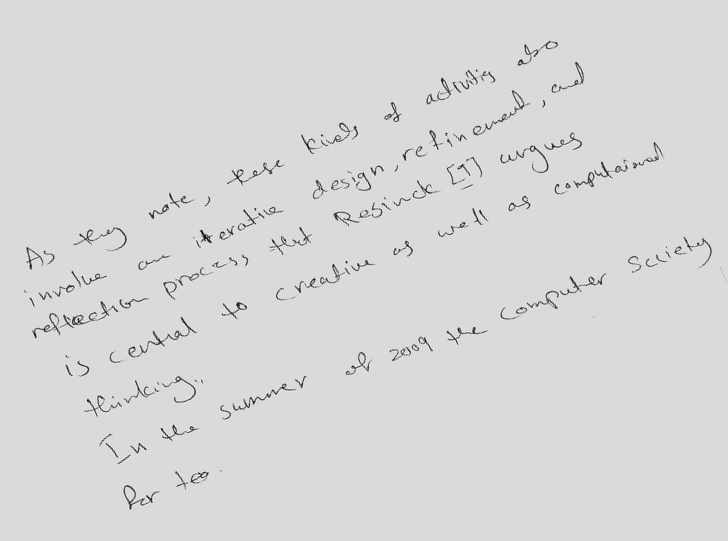 As they note, these kinds of activitis also
involve an iterative design, refinement, and
reflection process that Resinck [1] argues
is central to creative as well as computaional
thinking..
In the summer of 2009 the Computer Society
for tea.